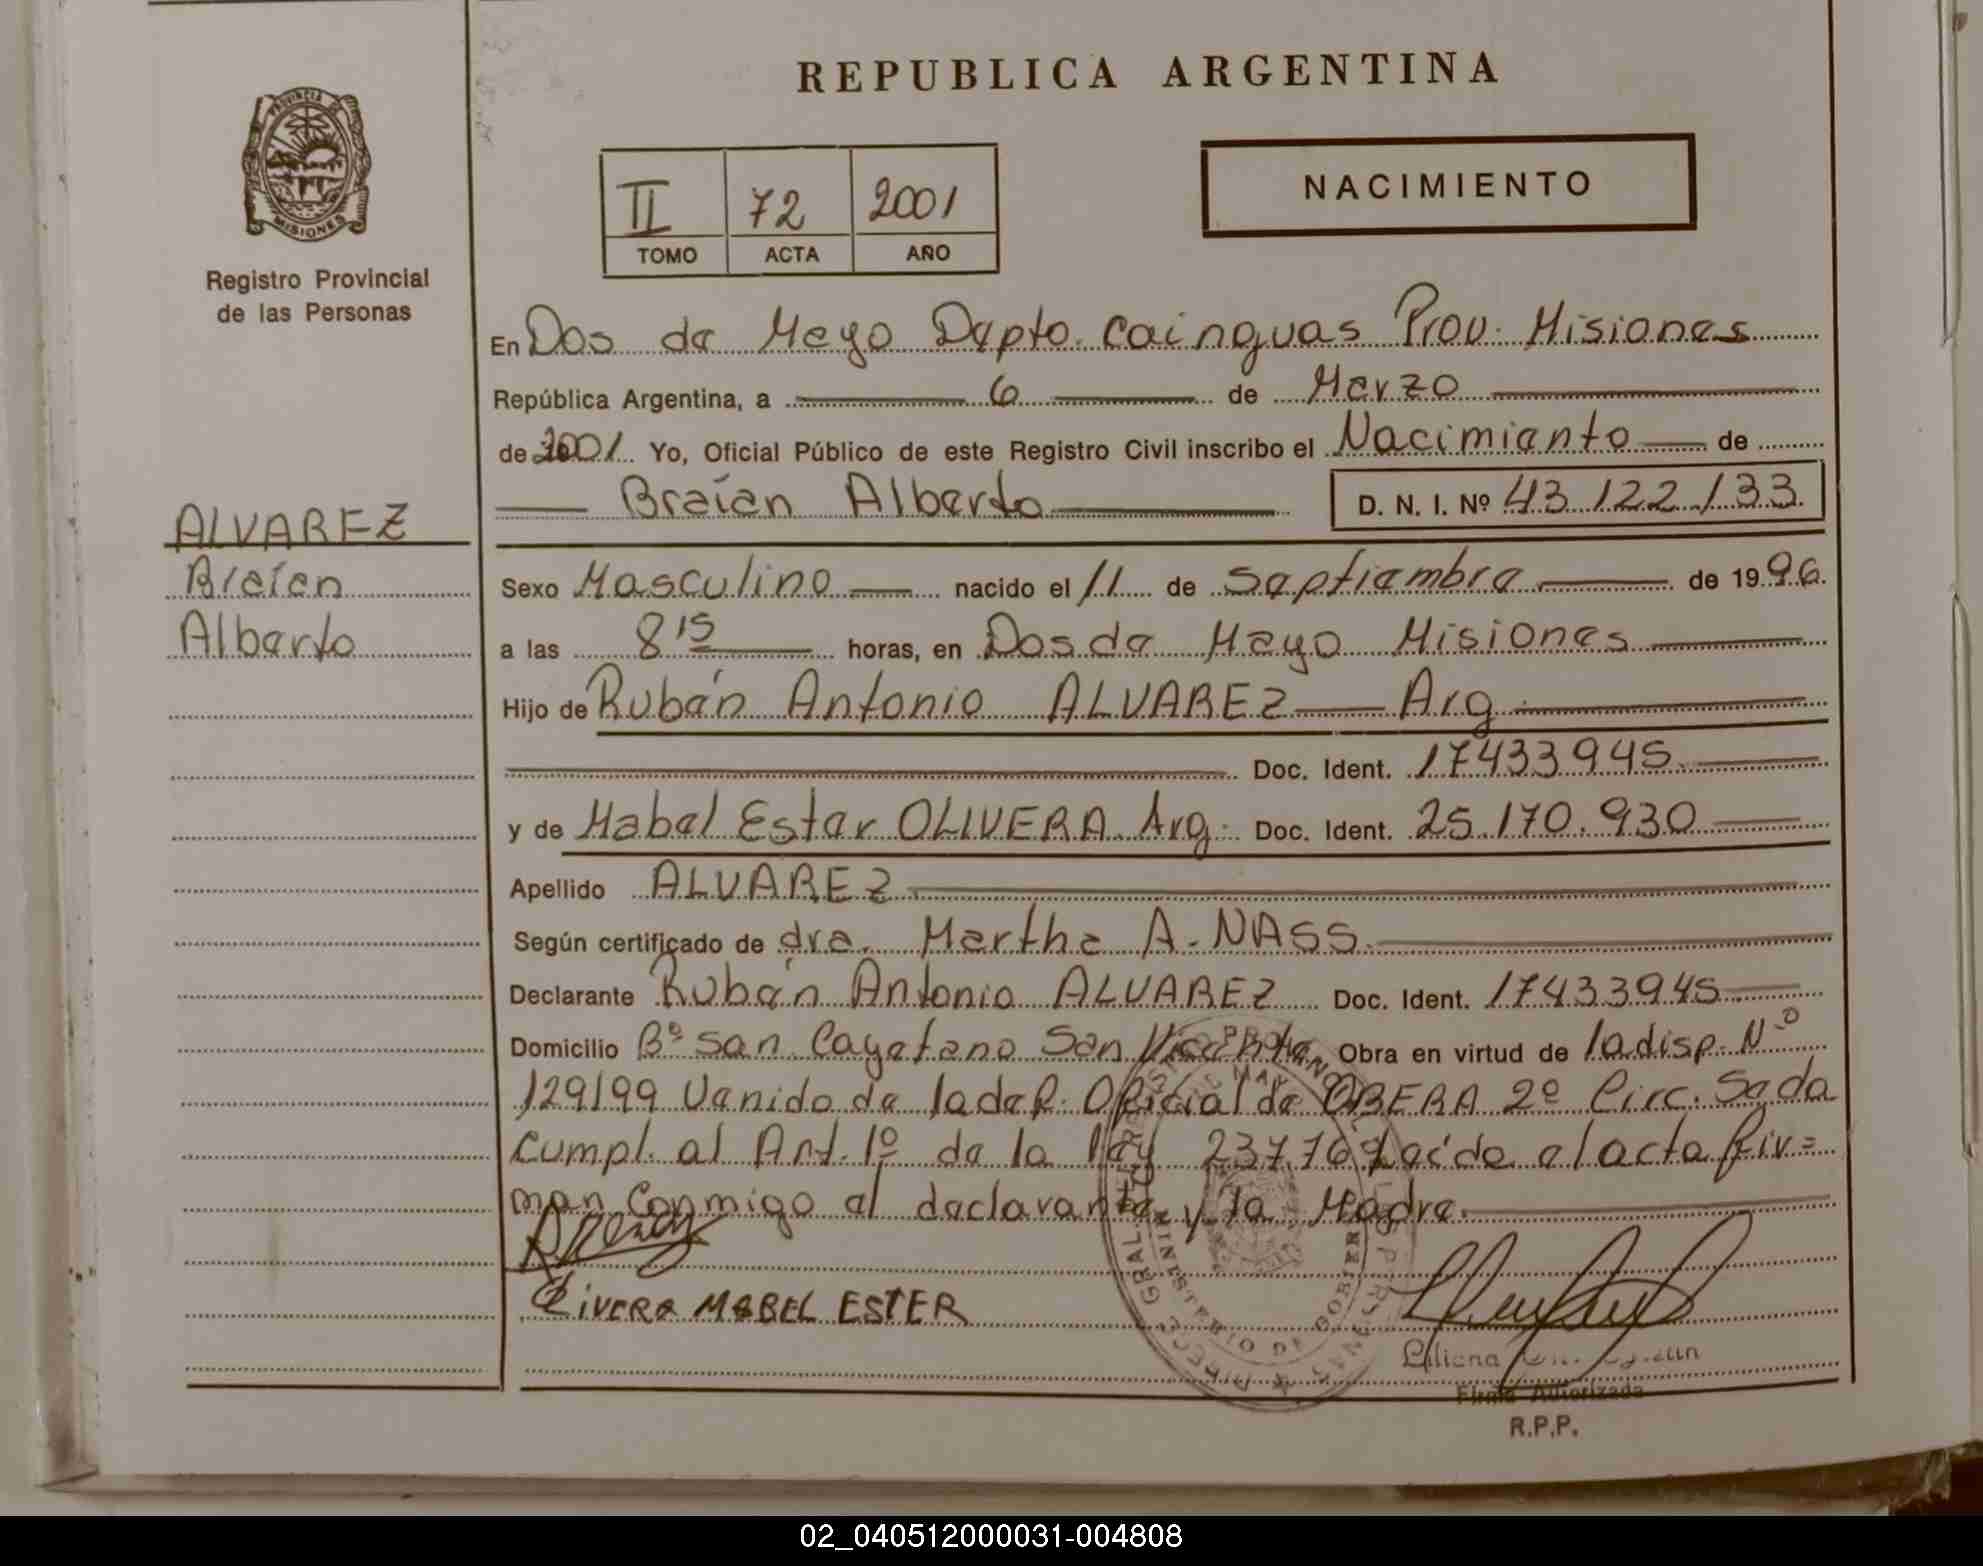 REPUBLICA ARGENTINA
PROVINCIA DE
MISIONES
Registro Provincial
de las Personas
II 72 2001
TOMO ACTA AÑO
NACIMIENTO
En Dos de Mayo Depto. Cainguas Prov. Misiones
República Argentina, a 6 de Marzo
de 2001 Yo, Oficial Público de este Registro Civil inscribo el Nacimiento de
Braian Alberto D. N. I. Nº 43.122.133
ALVAREZ
Braian
Alberto
Sexo Masculino nacido el 11 de Septiembre de 1996
a las 8 15 horas, en Dos de Mayo Misiones
Hijo de Rubén Antonio ALVAREZ Arg
Doc. Ident. 17433945
y de Mabel Ester OLIVERA Arg. Doc. Ident. 25.170.930
Apellido ALVAREZ
Según certificado de dra. Martha A. NASS.
Declarante Rubén Antonio ALVAREZ Doc. Ident. 17433945
Domicilio Bº San Cayetano San Vicente Obra en virtud de la disp. Nº
129/99 Venido de la del. Oficial de OBERA 2º Circ. Se da
cumpl. al Art. 1º de la ley 23776 Leída el acta fir=
man conmigo el declarante y la Madre.
OLIVERA MABEL ESTER
Liliana
Firma Autorizada
R.P.P.
02_040512000031-004808